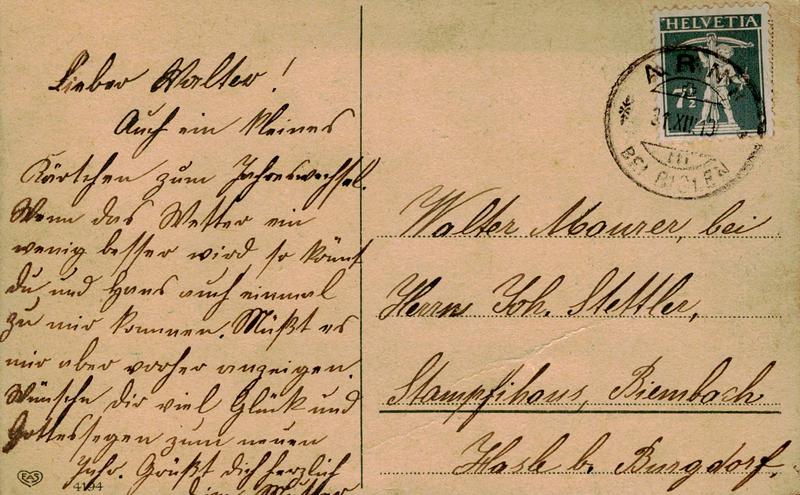 Lieber Walter!
Auch ein kleines
Kärtchen zum Jahreswechsel.
Wenn das Wetter ein
wenig besser wird so könnt
du und Hans auch einmal
zu mir kommen. Müßt es
mir aber vorher anzeigen.
Wünsche dir viel Glück und
Gottessegen zum neuen
Jahr. Grüßt dich herzlich
deine Mutter
EAS
4194
HELVETIA
7½
ARNI
31.XII
III
BEI BIGLEN
Walter Maurer, bei
Herrn Joh. Stettler,
Stampfihaus, Biembach
Hasle b. Burgdorf,